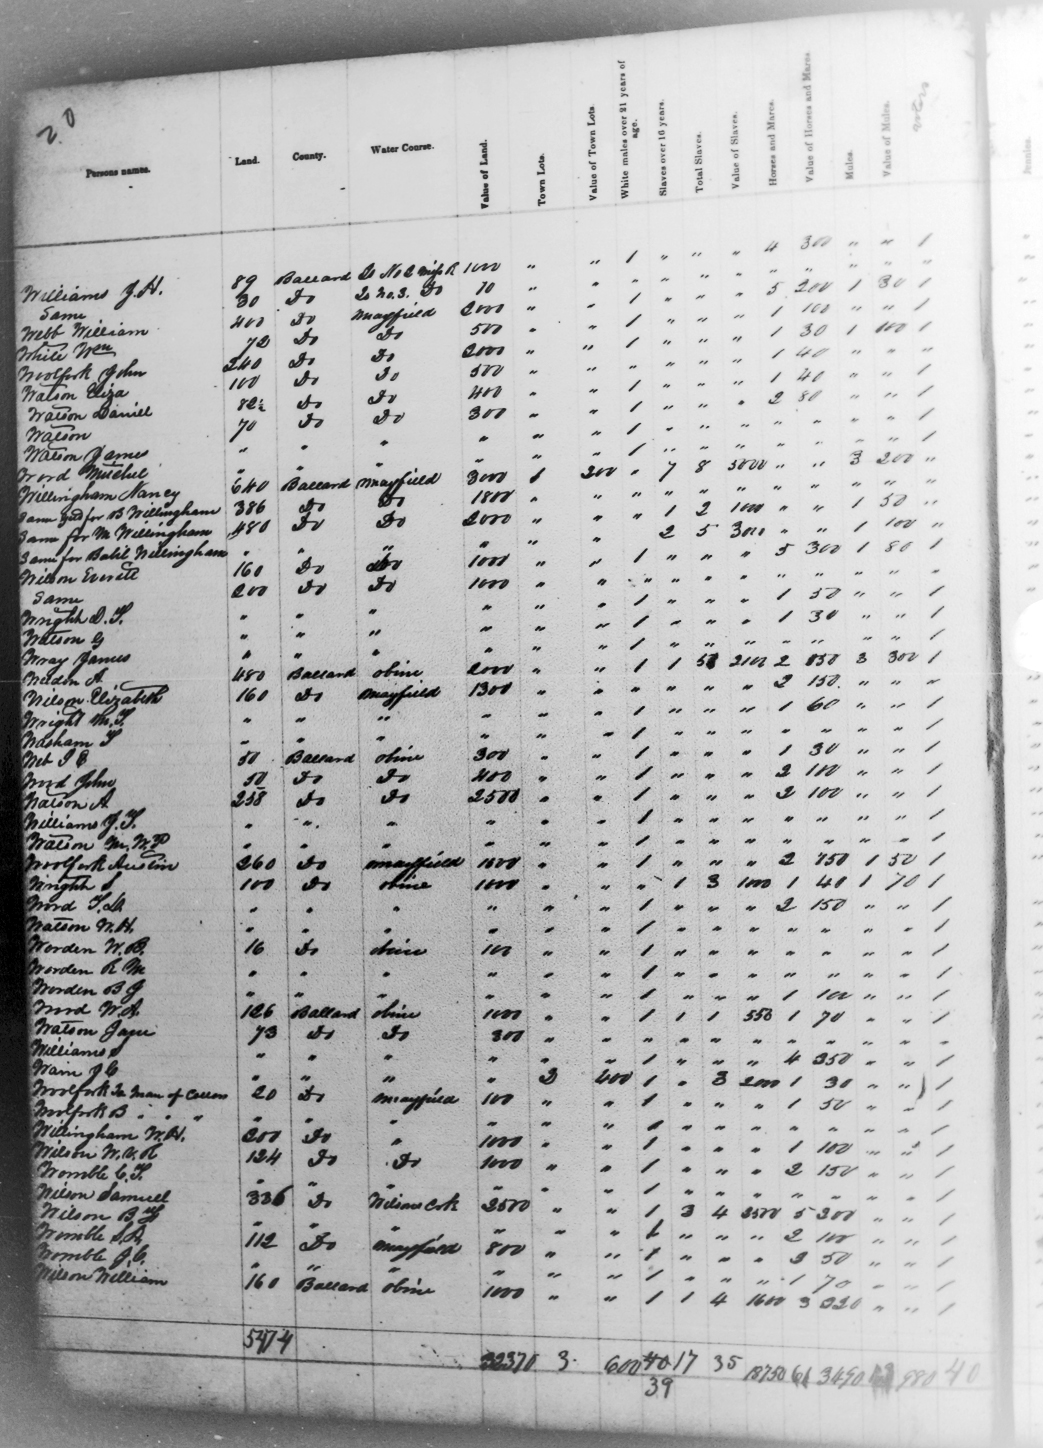 20
Persons names. Land. County. Water Course. Value of Land. Town Lots. Value of Town Lots. White males over 21 years of age. Slaves over 16 years. Total Slaves. Value of Slaves. Horses and Mares. Value of Horses and Mares. Mules. Value of Mules.
Williams J. H. 89 Ballard Lo No 2 Miss R 1000 " " 1 " " " 4 300 " " 1
Same 30 Do Lo No. 3. Do 70 " " " " " " " " " " "
Webb William 400 Do Mayfield 2000 " " 1 " " " 5 200 1 30 1
White Wm 72 Do Do 500 " " 1 " " " 1 100 " " 1
Woolfork John 240 Do Do 2000 " " 1 " " " 1 30 1 100 1
Watson Eliza 100 Do Do 500 " " " " " " 1 40 " " "
Watson Daniel 82½ Do Do 400 " " 1 " " " 1 40 " " 1
Watson 70 Do Do 300 " " 1 " " " 2 80 " " 1
Watson James " " " " " " 1 " " " " " " " 1
Word Mitchel " " " " " " 1 " " " " " " " 1
Willingham Nancy 640 Ballard Mayfield 3000 1 200 " 7 8 5000 " " 3 200 "
Same Gd for B Willingham 386 Do Do 1800 " " " " " " " " " " "
Same for M Willingham 480 Do Do 2000 " " " 1 2 1000 " " 1 50 "
Same for Willingham " " " " " " " 2 5 3000 " " 1 100 "
Wilson Everett 160 Do Do 1000 " " 1 " " " 5 300 1 80 1
Same 200 Do Do 1000 " " " " " " " " " " "
Wright D. F. " " " " " " 1 " " " 1 50 " " 1
Watson G " " " " " " 1 " " " 1 30 " " 1
Wray James " " " " " " 1 " " " " " " " 1
Weldon A 480 Ballard obine 2000 " " 1 1 5 2100 2 850 3 300 1
Wilson Elizabeth 160 Do Mayfield 1300 " " " " " " 2 150 " " "
Wright M. F. " " " " " " 1 " " " 1 60 " " 1
Washam T " " " " " " 1 " " " " " " " 1
Web I C 50 Ballard obine 300 " " 1 " " " 1 30 " " 1
Word John 50 Do Do 400 " " 1 " " " 2 100 " " 1
Watson A 258 Do Do 2500 " " 1 " " " 2 100 " " 1
Williams J. F. " " " " " " 1 " " " " " " " 1
Watson M. W. " " " " " " 1 " " " " " " " 1
Woolfork Austin 260 Do mayfield 1000 " " 1 " " " 2 750 1 50 1
Wright S 100 Do obine 1000 " " " 1 3 1000 1 40 1 70 1
Word T. D. " " " " " " 1 " " " 2 150 " " 1
Watson W. H. " " " " " " 1 " " " " " " " 1
Worden W. B. 16 Do obine 100 " " 1 " " " " " " " 1
Worden R M " " " " " " 1 " " " " " " " 1
Worden B G " " " " " " 1 " " " 1 100 " " 1
Word W. A. 126 Ballard obine 1000 " " 1 1 1 550 1 70 " " 1
Watson Jane 73 Do Do 300 " " " " " " " " " " "
Williams S " " " " " " 1 " " " 4 350 " " 1
Wain J C " " " " 2 400 1 " 3 2000 1 30 " " 1
Woolfork 20 Do Mayfield 100 " " 1 " " " 1 50 " " 1
Woolfork B " " " " " " 1 " " " " " " " 1
Willingham W. H. 200 Do " 1000 " " 1 " " " 1 100 " " 1
Wilson 124 Do Do 1000 " " 1 " " " 2 150 " " 1
Womble C. F. " " " " " " 1 " " " " " " " 1
Wilson Samuel 336 Do Wilsons crk 2500 " " 1 3 4 2500 5 200 " " 1
Wilson B " " " " " " 1 " " " 2 100 " " 1
Womble S. A. 112 Do mayfield 800 " " 1 " " " 2 50 " " 1
Womble J. C. " " " " " " 1 " " " 1 70 " " 1
Wilson William 160 Ballard obine 1000 " " 1 1 4 1600 3 220 " " 1
5474 32370 3 600 40 17 35 18750 61 980 40
39